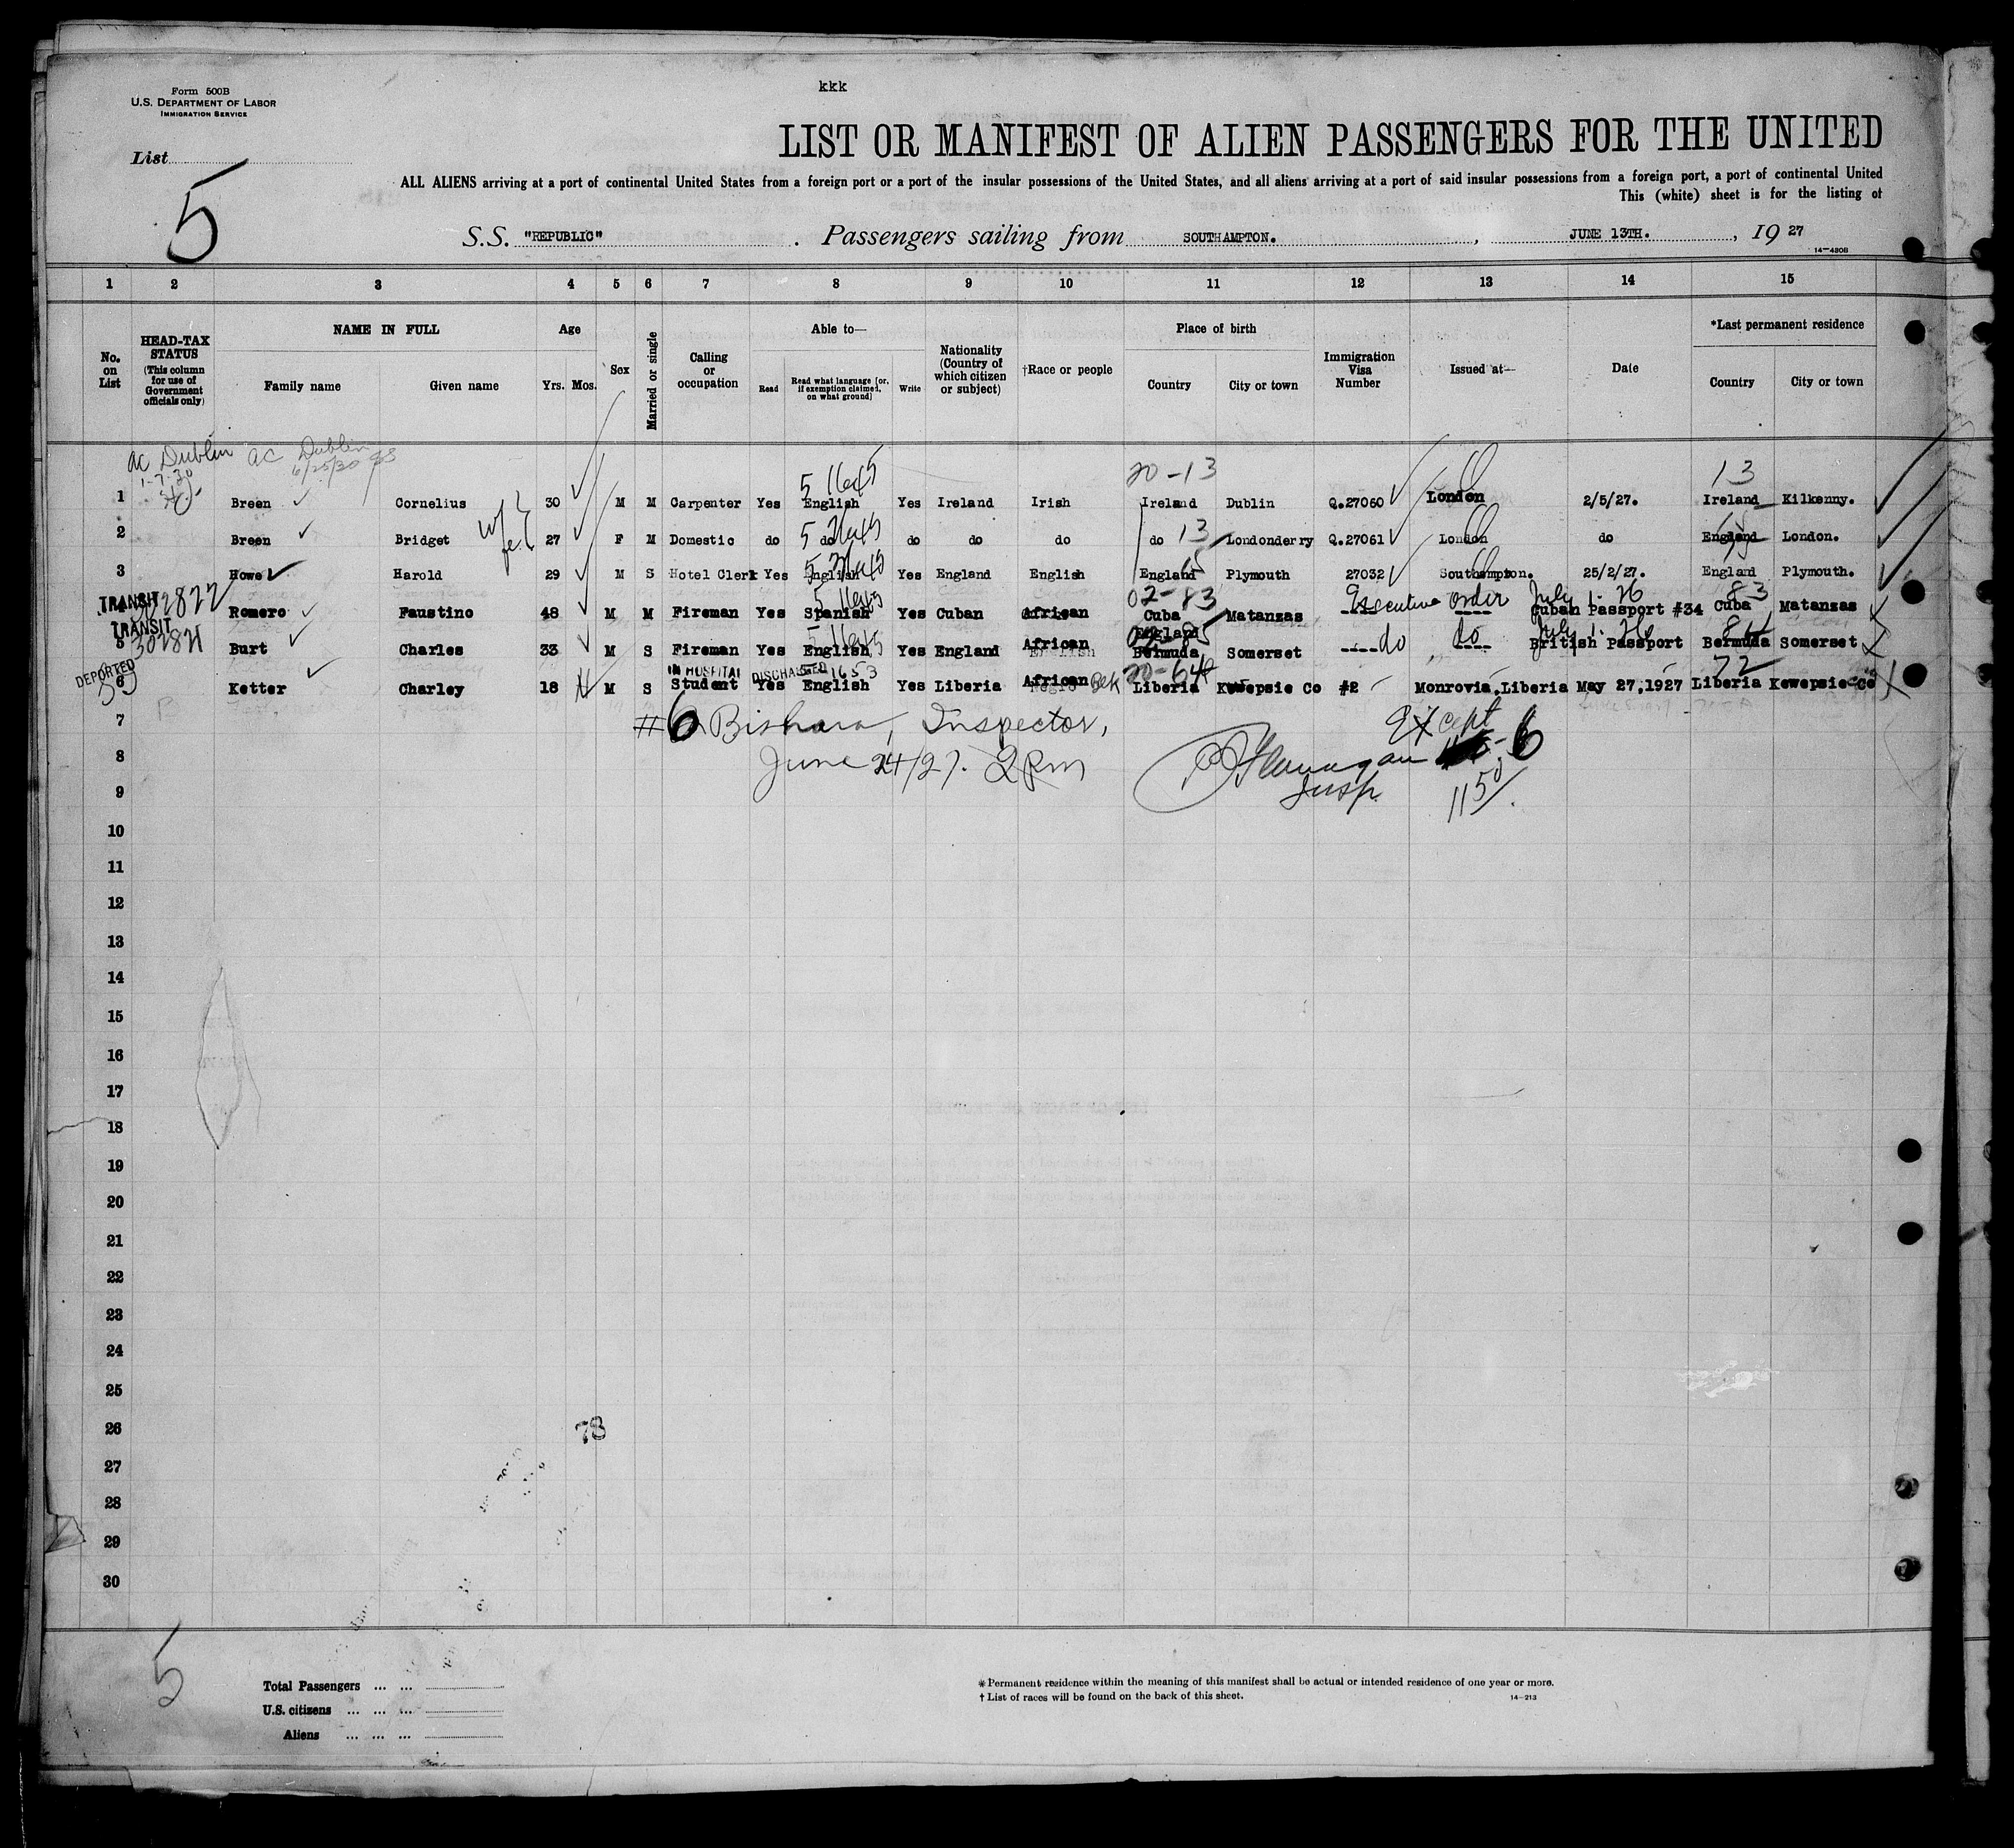 kkk
Form 500B
U.S. DEPARTMENT OF LABOR
IMMIGRATION SERVICE
LIST OR MANIFEST OF ALIEN PASSENGERS FOR THE UNITED
List
5
ALL ALIENS arriving at a port of continental United States from a foreign port or a port of the insular possessions of the United States, and all aliens arriving at a port of said insular possessions from a foreign port, a port of continental United
This (white) sheet is for the listing of
S.S. "REPUBLIC" . Passengers sailing from SOUTHAMPTON. , JUNE 13TH. , 19 27
1 2 3 4 5 6 7 8 9 10 11 12 13 14 15
No. on List
HEAD-TAX STATUS (This column for use of Government officials only)
NAME IN FULL
Family name Given name
Age
Yrs. Mos.
Sex
Married or single
Calling or occupation
Able to—
Read Read what language [or, if exemption claimed, on what ground] Write
Nationality (Country of which citizen or subject)
†Race or people
Place of birth
Country City or town
Immigration Visa Number
Issued at—
Date
*Last permanent residence
Country City or town
ac Dublin ac Dublin
1-7-30 6/25/30
20-13 13
1 Breen Cornelius 30 M M Carpenter Yes English Yes Ireland Irish Ireland Dublin Q.27060 London 2/5/27. Ireland Kilkenny.
wife
2 Breen Bridget 27 F M Domestic do do do do do do 13 Londonderry Q.27061 London do England London.
3 Howe Harold 29 M S Hotel Clerk Yes English Yes England English England Plymouth 27032 Southampton. 25/2/27. England Plymouth.
TRANSIT 02-83 Executive order July 1-26 83
Romero Faustino 48 M M Fireman Yes Spanish Yes Cuban African Cuba Matanzas ---- ---- Cuban Passport #34 Cuba Matanzas
TRANSIT England do do July 1-26
5 Burt Charles 33 M S Fireman Yes English Yes England African Bermuda Somerset ---- ---- British Passport Bermuda Somerset
DEPORTED IN HOSPITAL DISCHARGED 1653 20-64 72
6 Ketter Charley 18 M S Student Yes English Yes Liberia African Blk Liberia Kewepsie Co #2 Monrovia, Liberia May 27, 1927 Liberia Kewepsie Co
7 #6 Bishara, Inspector, Except
8 June 24/27. 2 Pm Flanagan 6
Insp. 115
9
10
11
12
13
14
15
16
17
18
19
20
21
22
23
24
25
26 78
27
28
29
30
5
Total Passengers ... ...
U.S. citizens ... ... ...
Aliens ... ... ...
* Permanent residence within the meaning of this manifest shall be actual or intended residence of one year or more.
† List of races will be found on the back of this sheet. 14—213